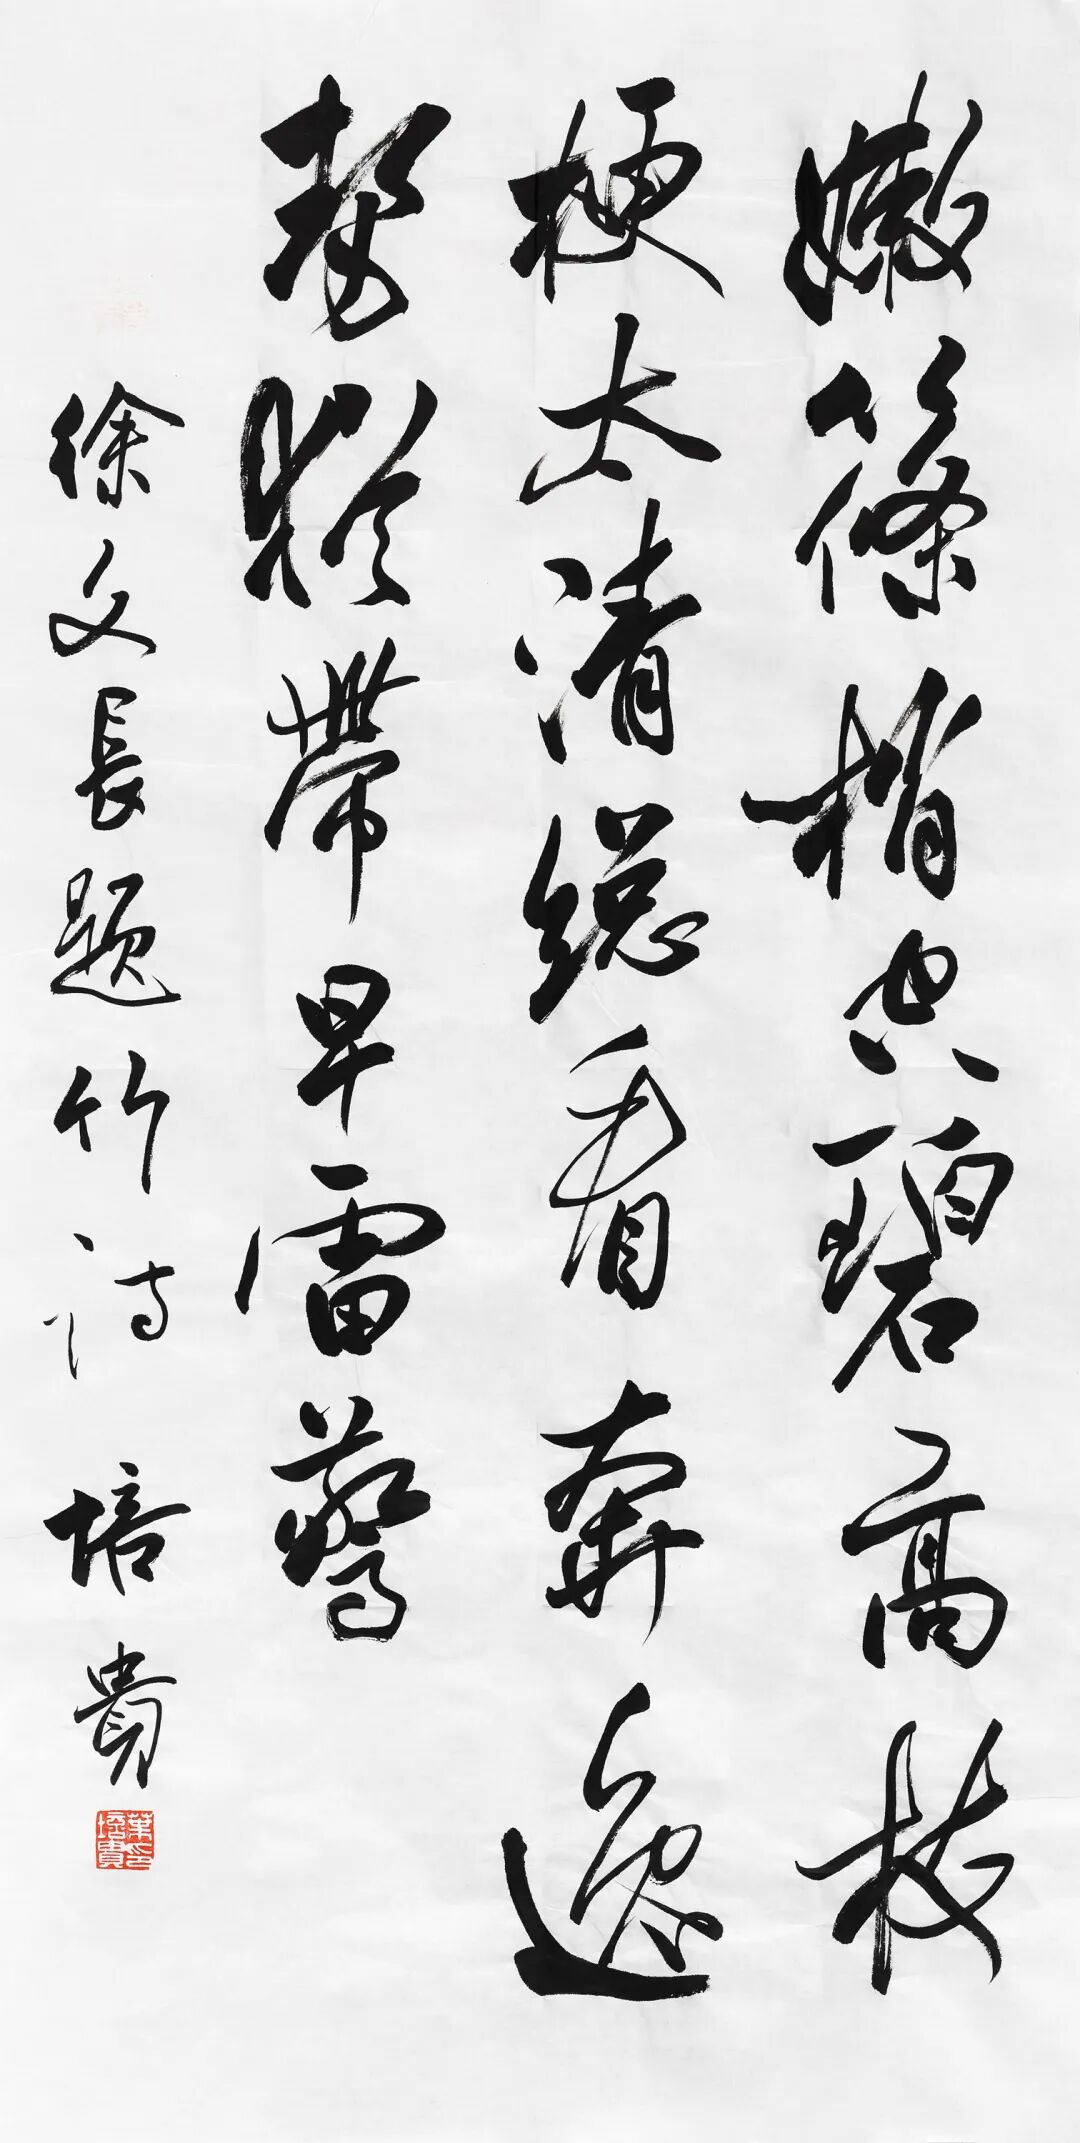 嫩篠梢空碧高枝
梗太清總看奔逸
勢帶早雷驚
徐文長題竹詩 培貴
葉印培貴